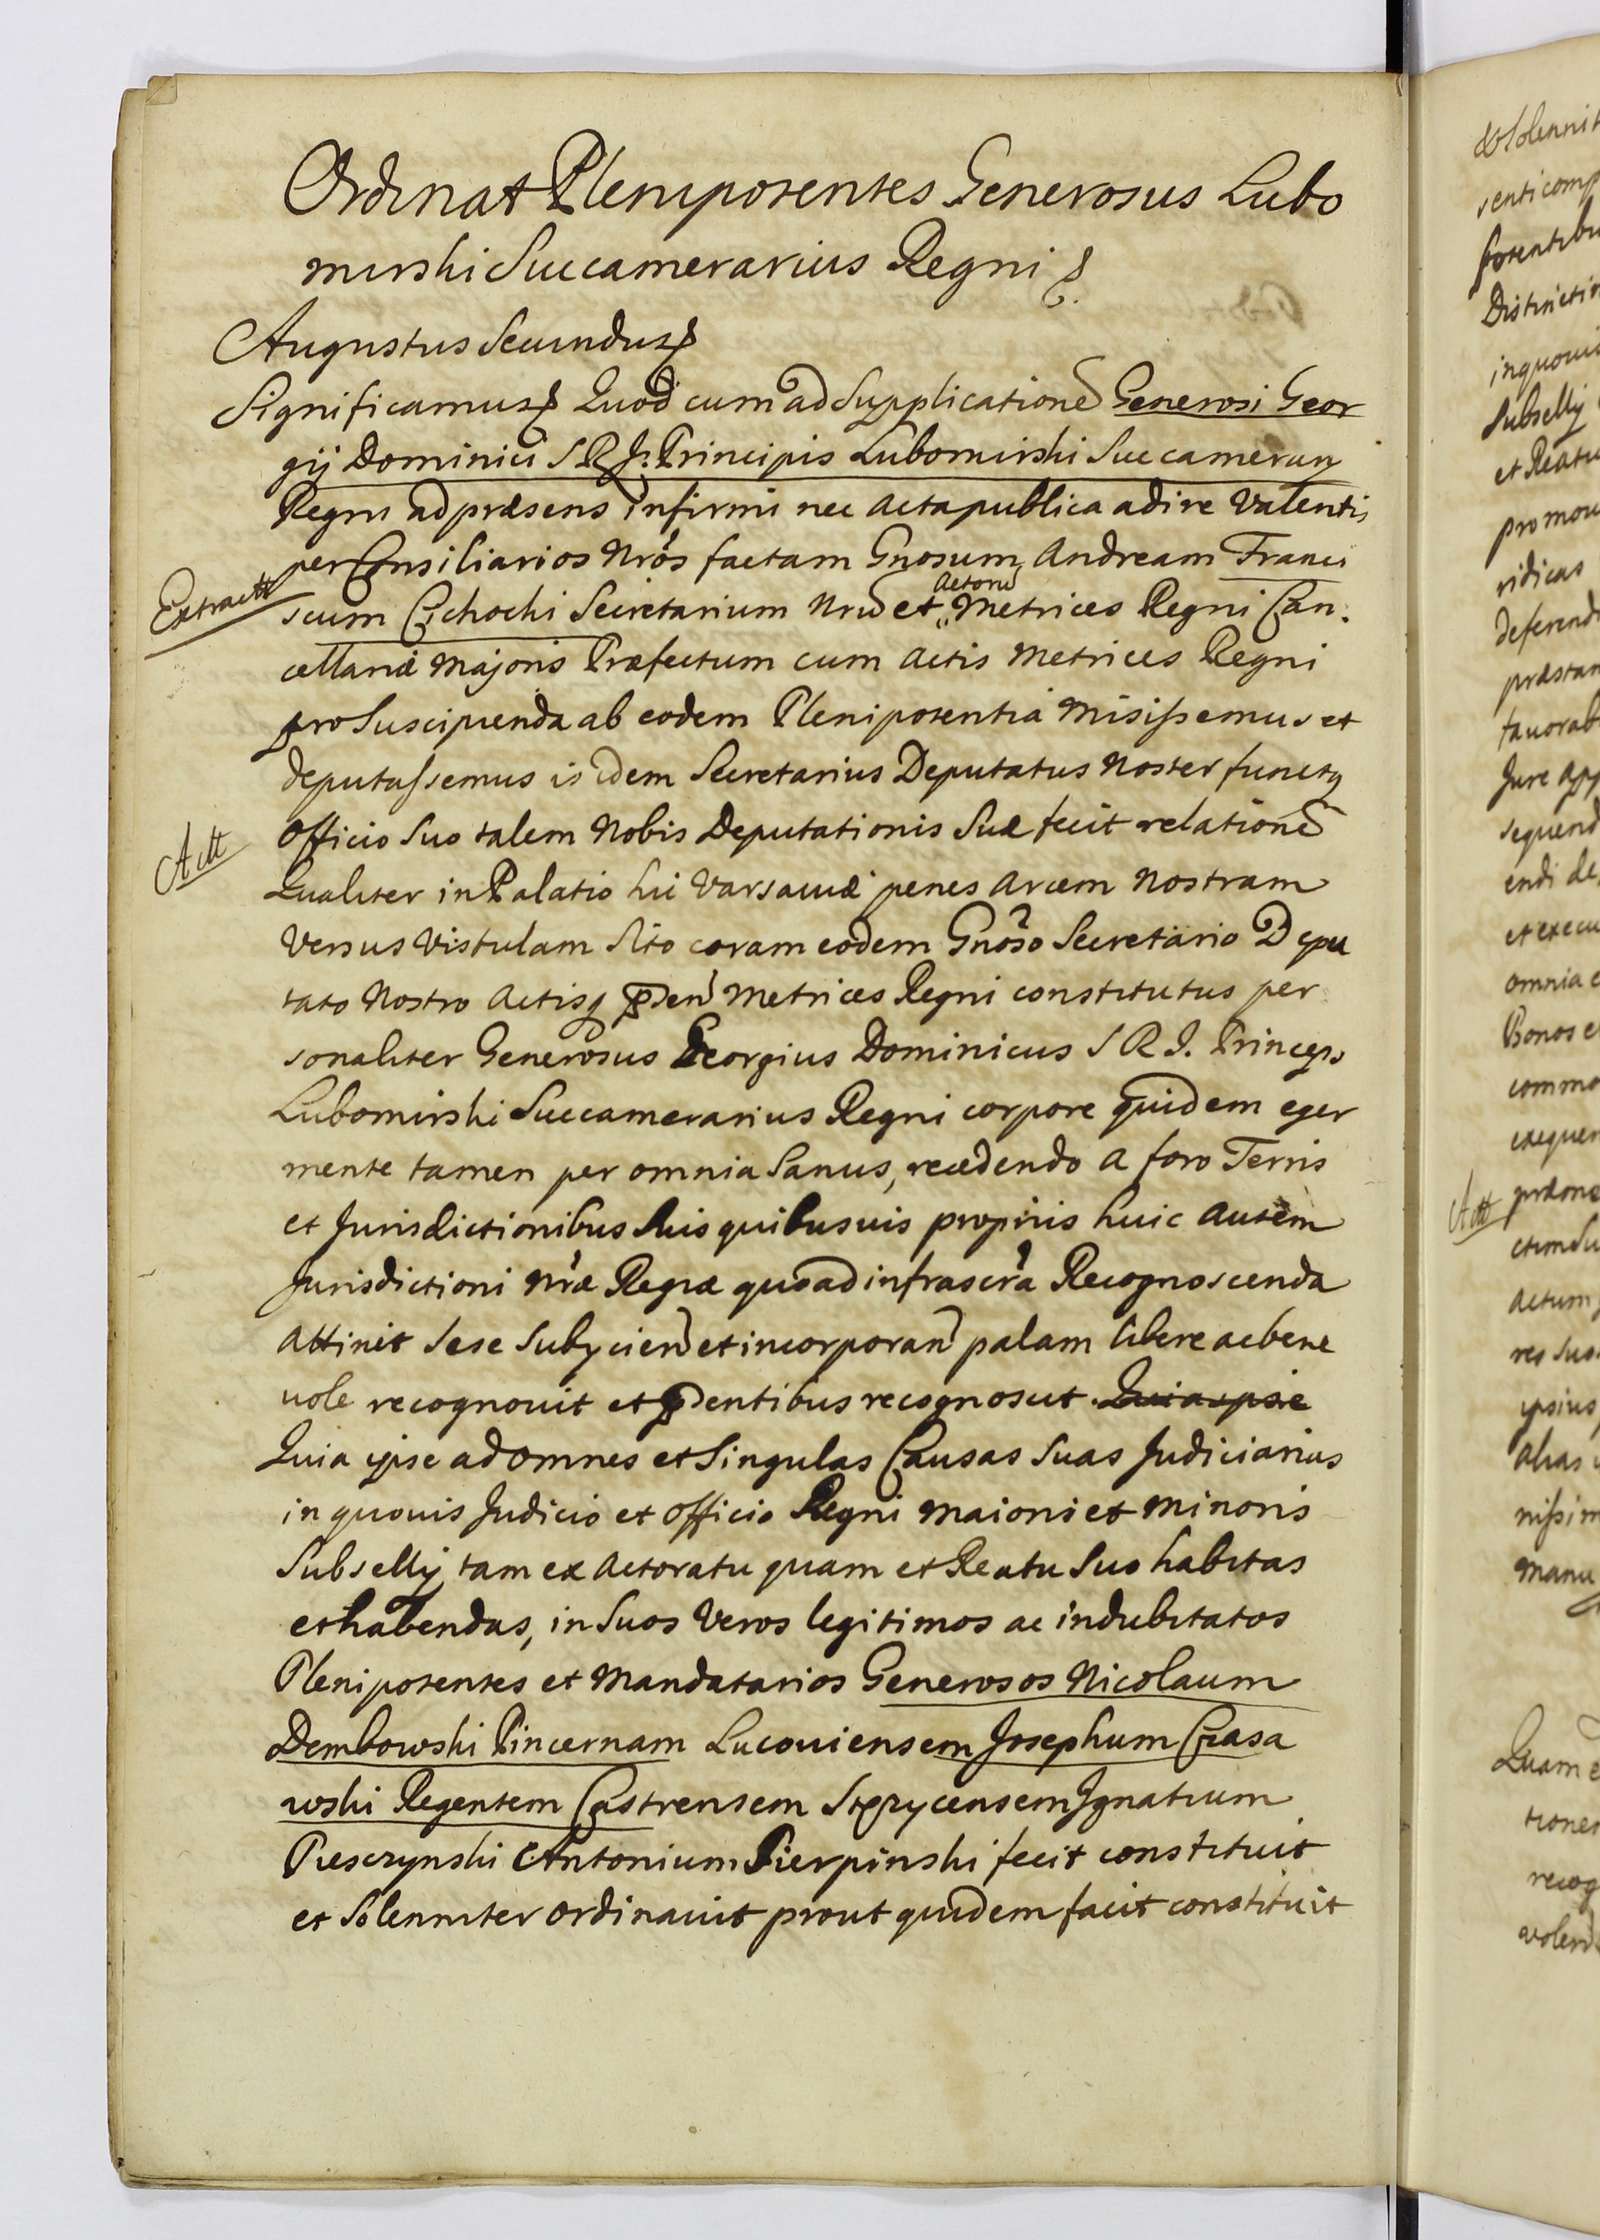 Ordinat Plenipotentes Generosus Lubo
mirski Succamerarius Regni &.
Augustus Secundus &
Significamus & Quod cum ad Supplicatione Generosi Geor
gij Dominici S R J: Principis Lubomirski Succamerary
Regni ad præsens infirmi nec acta publica adire valentis
per Consiliarios Nros factam Gnosum Andream Franci
Extractt
Actoru
scum Cichocki Secretarium Nru et Metrices Regni Can.
cellariæ Majoris Præfectum cum Actis Metrices Regni
pro Suscipienda ab eodem Plenipotentia Misissemus et
deputassemus is idem Secretarius Deputatus Noster functq
Officio Suo talem Nobis Deputationis Suæ fecit relatione
Actt
Qualiter in Palatio hic Varsaviæ penes Arcem Nostram
versus Vistulam Sito coram eodem Gnoso Secretario Depu
tato Nostro Actisq pden Metrices Regni constitutus per
sonaliter Generosus Georgius Dominicus S R J. Princeps
Lubomirski Succamerarius Regni corpore quidem eger
mente tamen per omnia Sanus, recedendo a foro Terris
et Jurisdictionibus Suis quibusuis proprijs huic autem
Jurisdictioni Nræ Regiæ quoad infrascra Recognoscenda
attinet Sese Subjicien et incorporan palam libere ac bene
uole recognouit et pdentibus recognoscit. Quia ipse
Quia ipse ad omnes et Singulas Causas Suas Judiciarias
in quouis Judicio et Officio Regni Maioris et Minoris
Subsellij tam ex Actoratu quam et Reatu Suo habitas
et habendas, in Suos Veros legitimos ac indubitatos
Plenipotentes et Mandatarios Generosos Nicolaum
Dembowski Pincernam Lucouiensem Josephum Czasa
wski Regentem Castrensem Stezycensem Ignatium
Piesczynski Antonium Sierpinski fecit constituit
et Solenniter ordinauit prout quidem facit constituit
senti comp
Distinctio
inquouis
Subsellij
et Reatu
promou
ridicas
deferend
præstan
fauorab
Jure app
sequend
endi de
et execu
omnia e
Bonos e
commo
exequen
Actt
Actum
res suo
ipsius
alias
nissim
manu
Quam e
tiones
recog